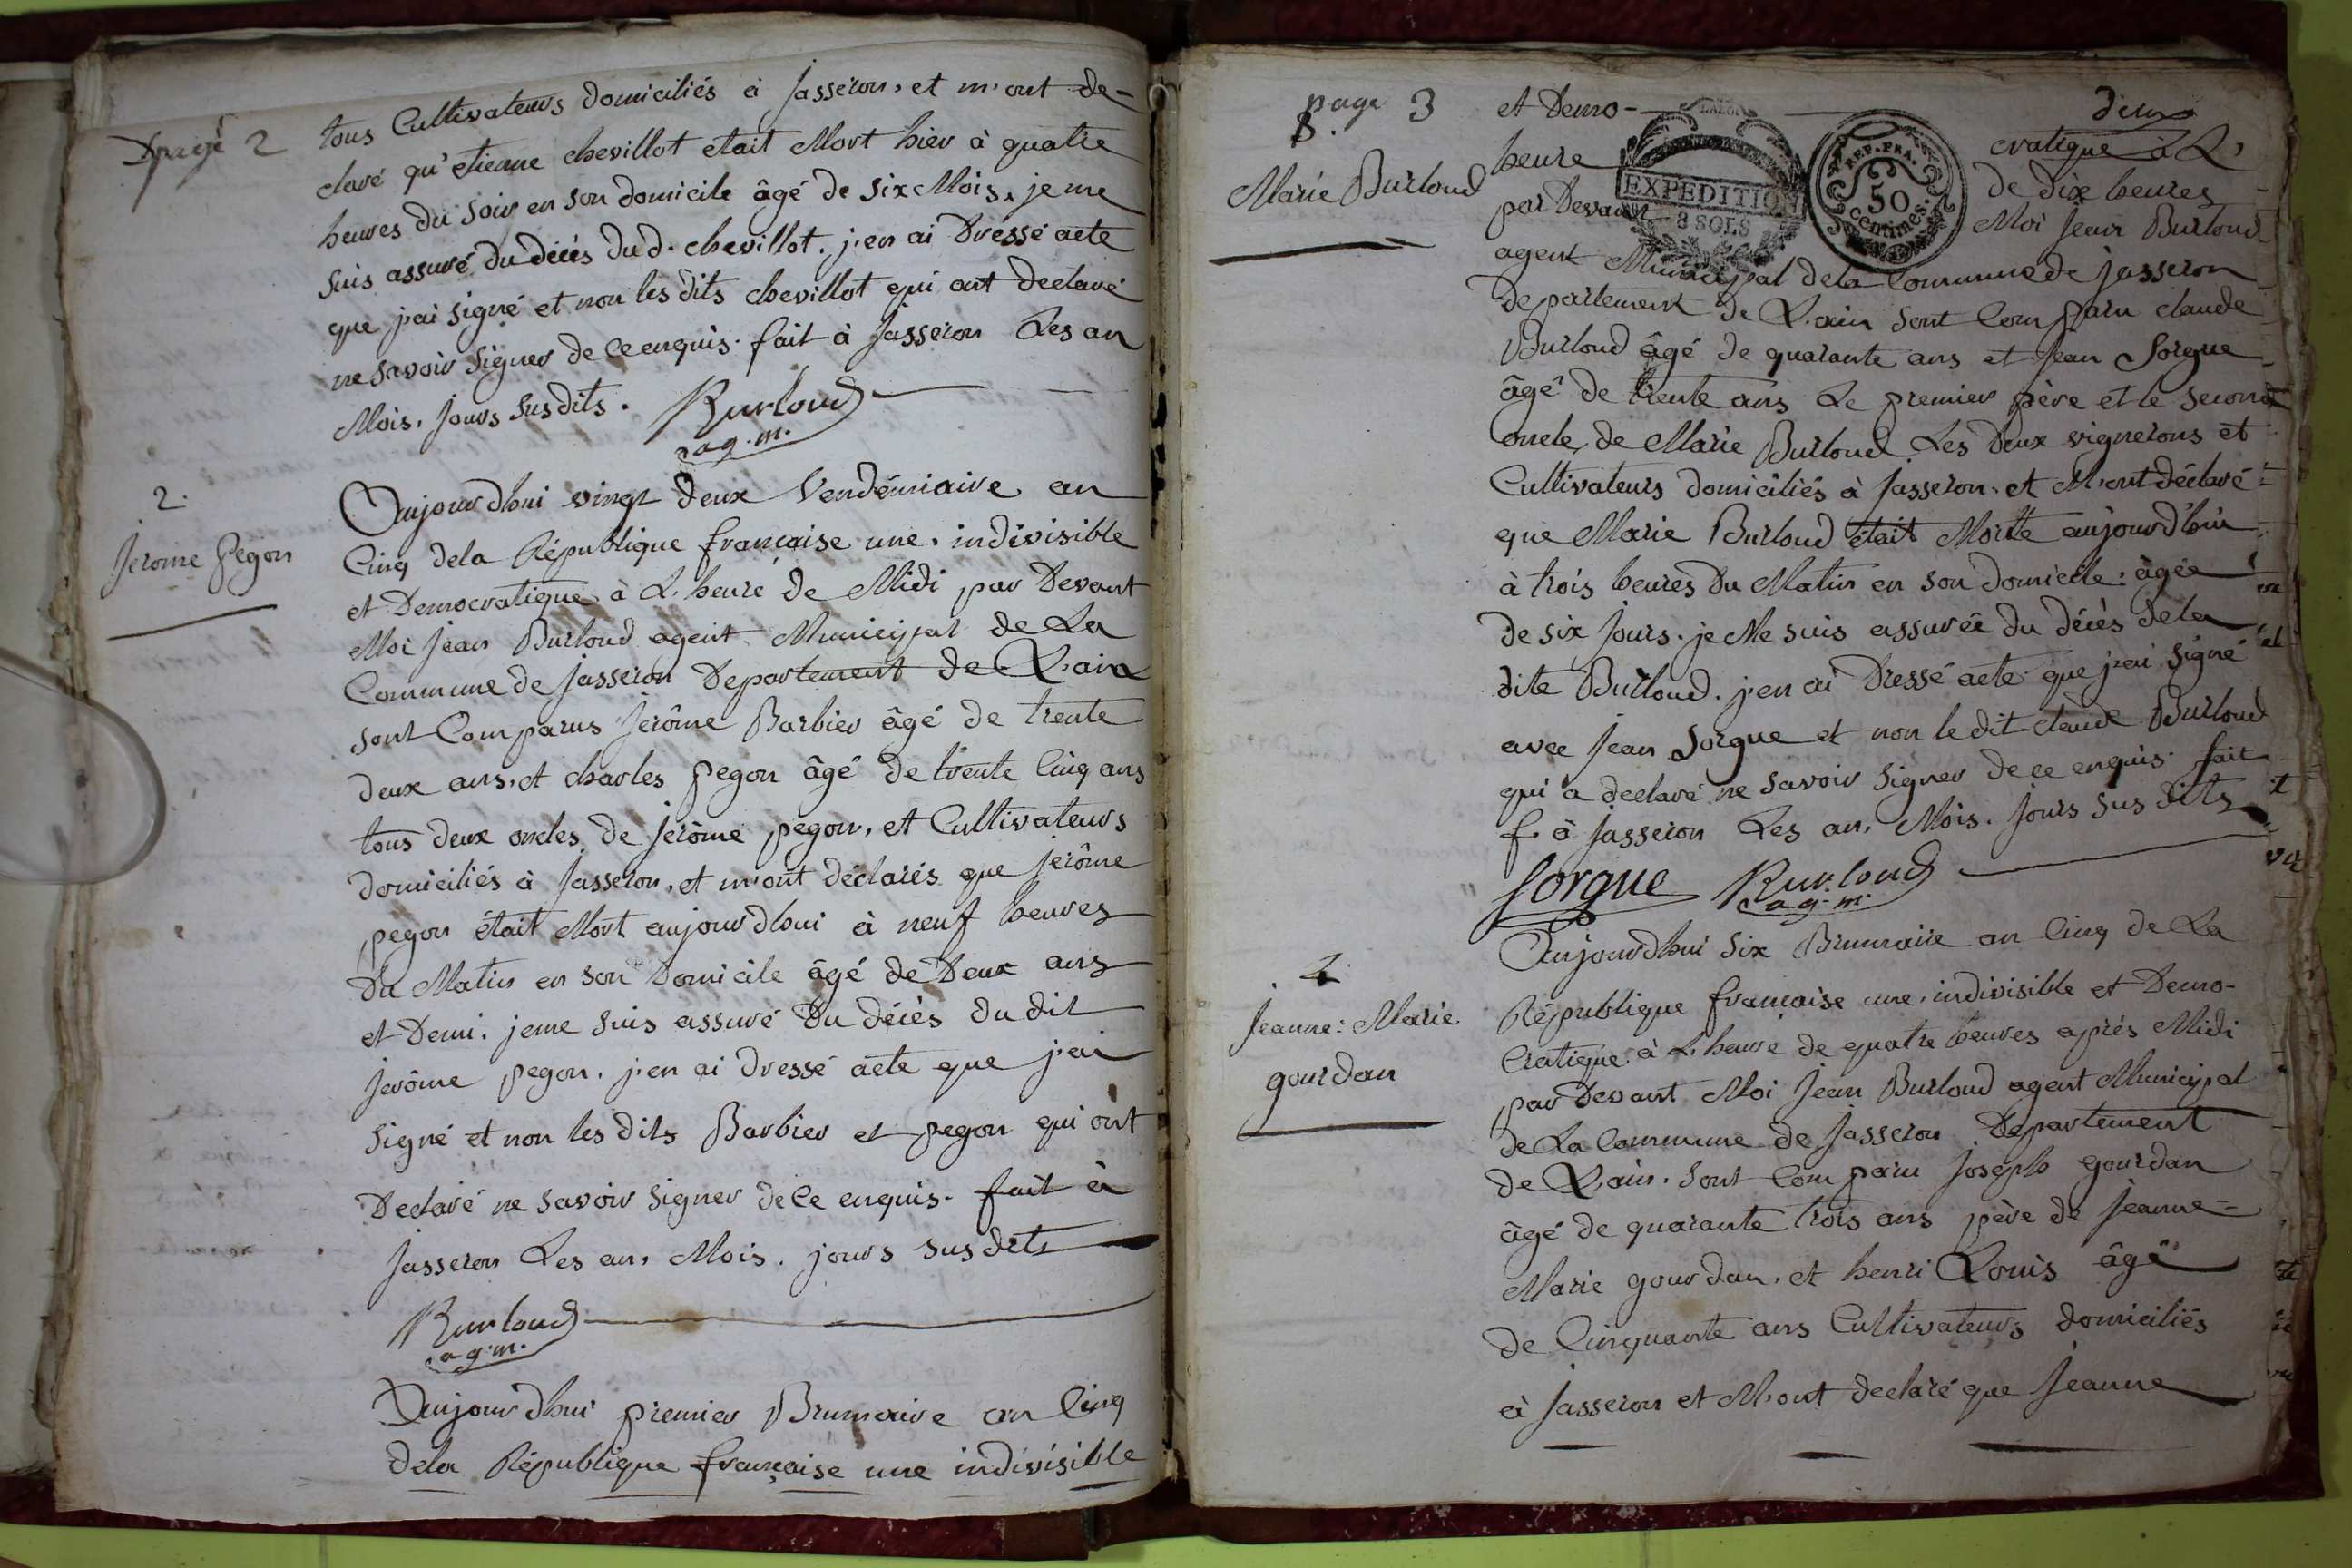 page 2
tous Cultivateurs domiciliés à Jasseron, et m'ont de-
claré qu'etienne chevillot etait Mort hier à quatre
heures du soir en son domicile âgé de six Mois, je me
suis assuré du décès dud. chevillot. j'en ai Dressé acte
que j'ai signé et non les dits chevillot qui ont declaré
ne savoir signer de ce enquis. fait à Jasseron Les an
Mois, jours susdits. Burloud
ag. m.
2.
Jerome pegon
Aujourdhui vingt deux Vendémiaire an
Cinq dela République française une, indivisible
et Democratique à L'heure de Midi par Devant
Moi Jean Burloud agent Municipal de La
Commune de Jasseron Departement de L'ain
sont Comparus Jerôme Barbier âgé de trente
deux ans, et charles pegon âgé de trente Cinq ans
tous deux oncles de Jerôme pegon, et Cultivateurs
domiciliés à Jasseron, et m'ont déclarés que Jerôme
pegon était Mort aujourdhui à neuf heures
du Matin en son Domicile âgé de Deux ans
et Demi. je me suis assuré Du décès du dit
Jerôme pegon. j'en ai dressé acte que j'ai
signé et non les dits Barbier et pegon qui ont
Declaré ne savoir signer de Ce enquis. fait à
Jasseron Les an, Mois, jours susdits
Burloud
ag. m.
Aujourdhui premier Brumaire an Cinq
dela République française une indivisible
page 3
3.
Marie Burloud
et Demo- cratique à L'
heure de dix heures
par Devant Moi Jean Burloud
EXPEDITION
8 SOLS
REP. FRA.
50
centimes.
agent Municipal dela Commune de Jasseron
Departement de L'ain sont Comparu claude
Burloud âgé de quarante ans et Jean Sorgue
âgé de trente ans Le premier père et le second
oncle, de Marie Burloud Les Deux vignerons et
Cultivateurs domiciliés à Jasseron, et M'ont déclaré
que Marie Burloud était Morte aujourd'hui
à trois heures du Matin en son domicile: âgée
de six jours. je Me suis assurée du décès dela
dite Burloud. j'en ai Dressé acte que j'ai signé
avec Jean Sorgue et non le dit claude Burloud
qui a declaré ne savoir signer de ce enquis. fait
f. à Jasseron Les an, Mois, jours susdits
Sorgue Burloud
ag. m.
4
Jeanne: Marie
gourdan
Aujourdhui six Brumaire an Cinq de La
République française une, indivisible et Demo-
Cratique. à L'heure de quatre heures après Midi
par Devant Moi Jean Burloud agent Municipal
de La Commune de Jasseron Departement
de L'ain. sont Comparu Joseph gourdan
âgé de quarante trois ans père de Jeanne-
Marie gourdan, et henri Louis âgé
de Cinquante ans Cultivateurs domiciliés
à Jasseron et M'ont declaré que Jeanne